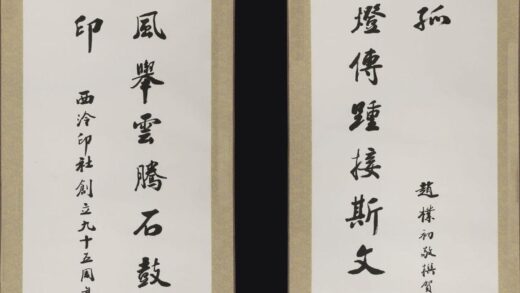 風舉雲騰石鼓
印
西泠印社創立九十五周
燈傳踵接斯文
孤
趙樸初敬撰賀